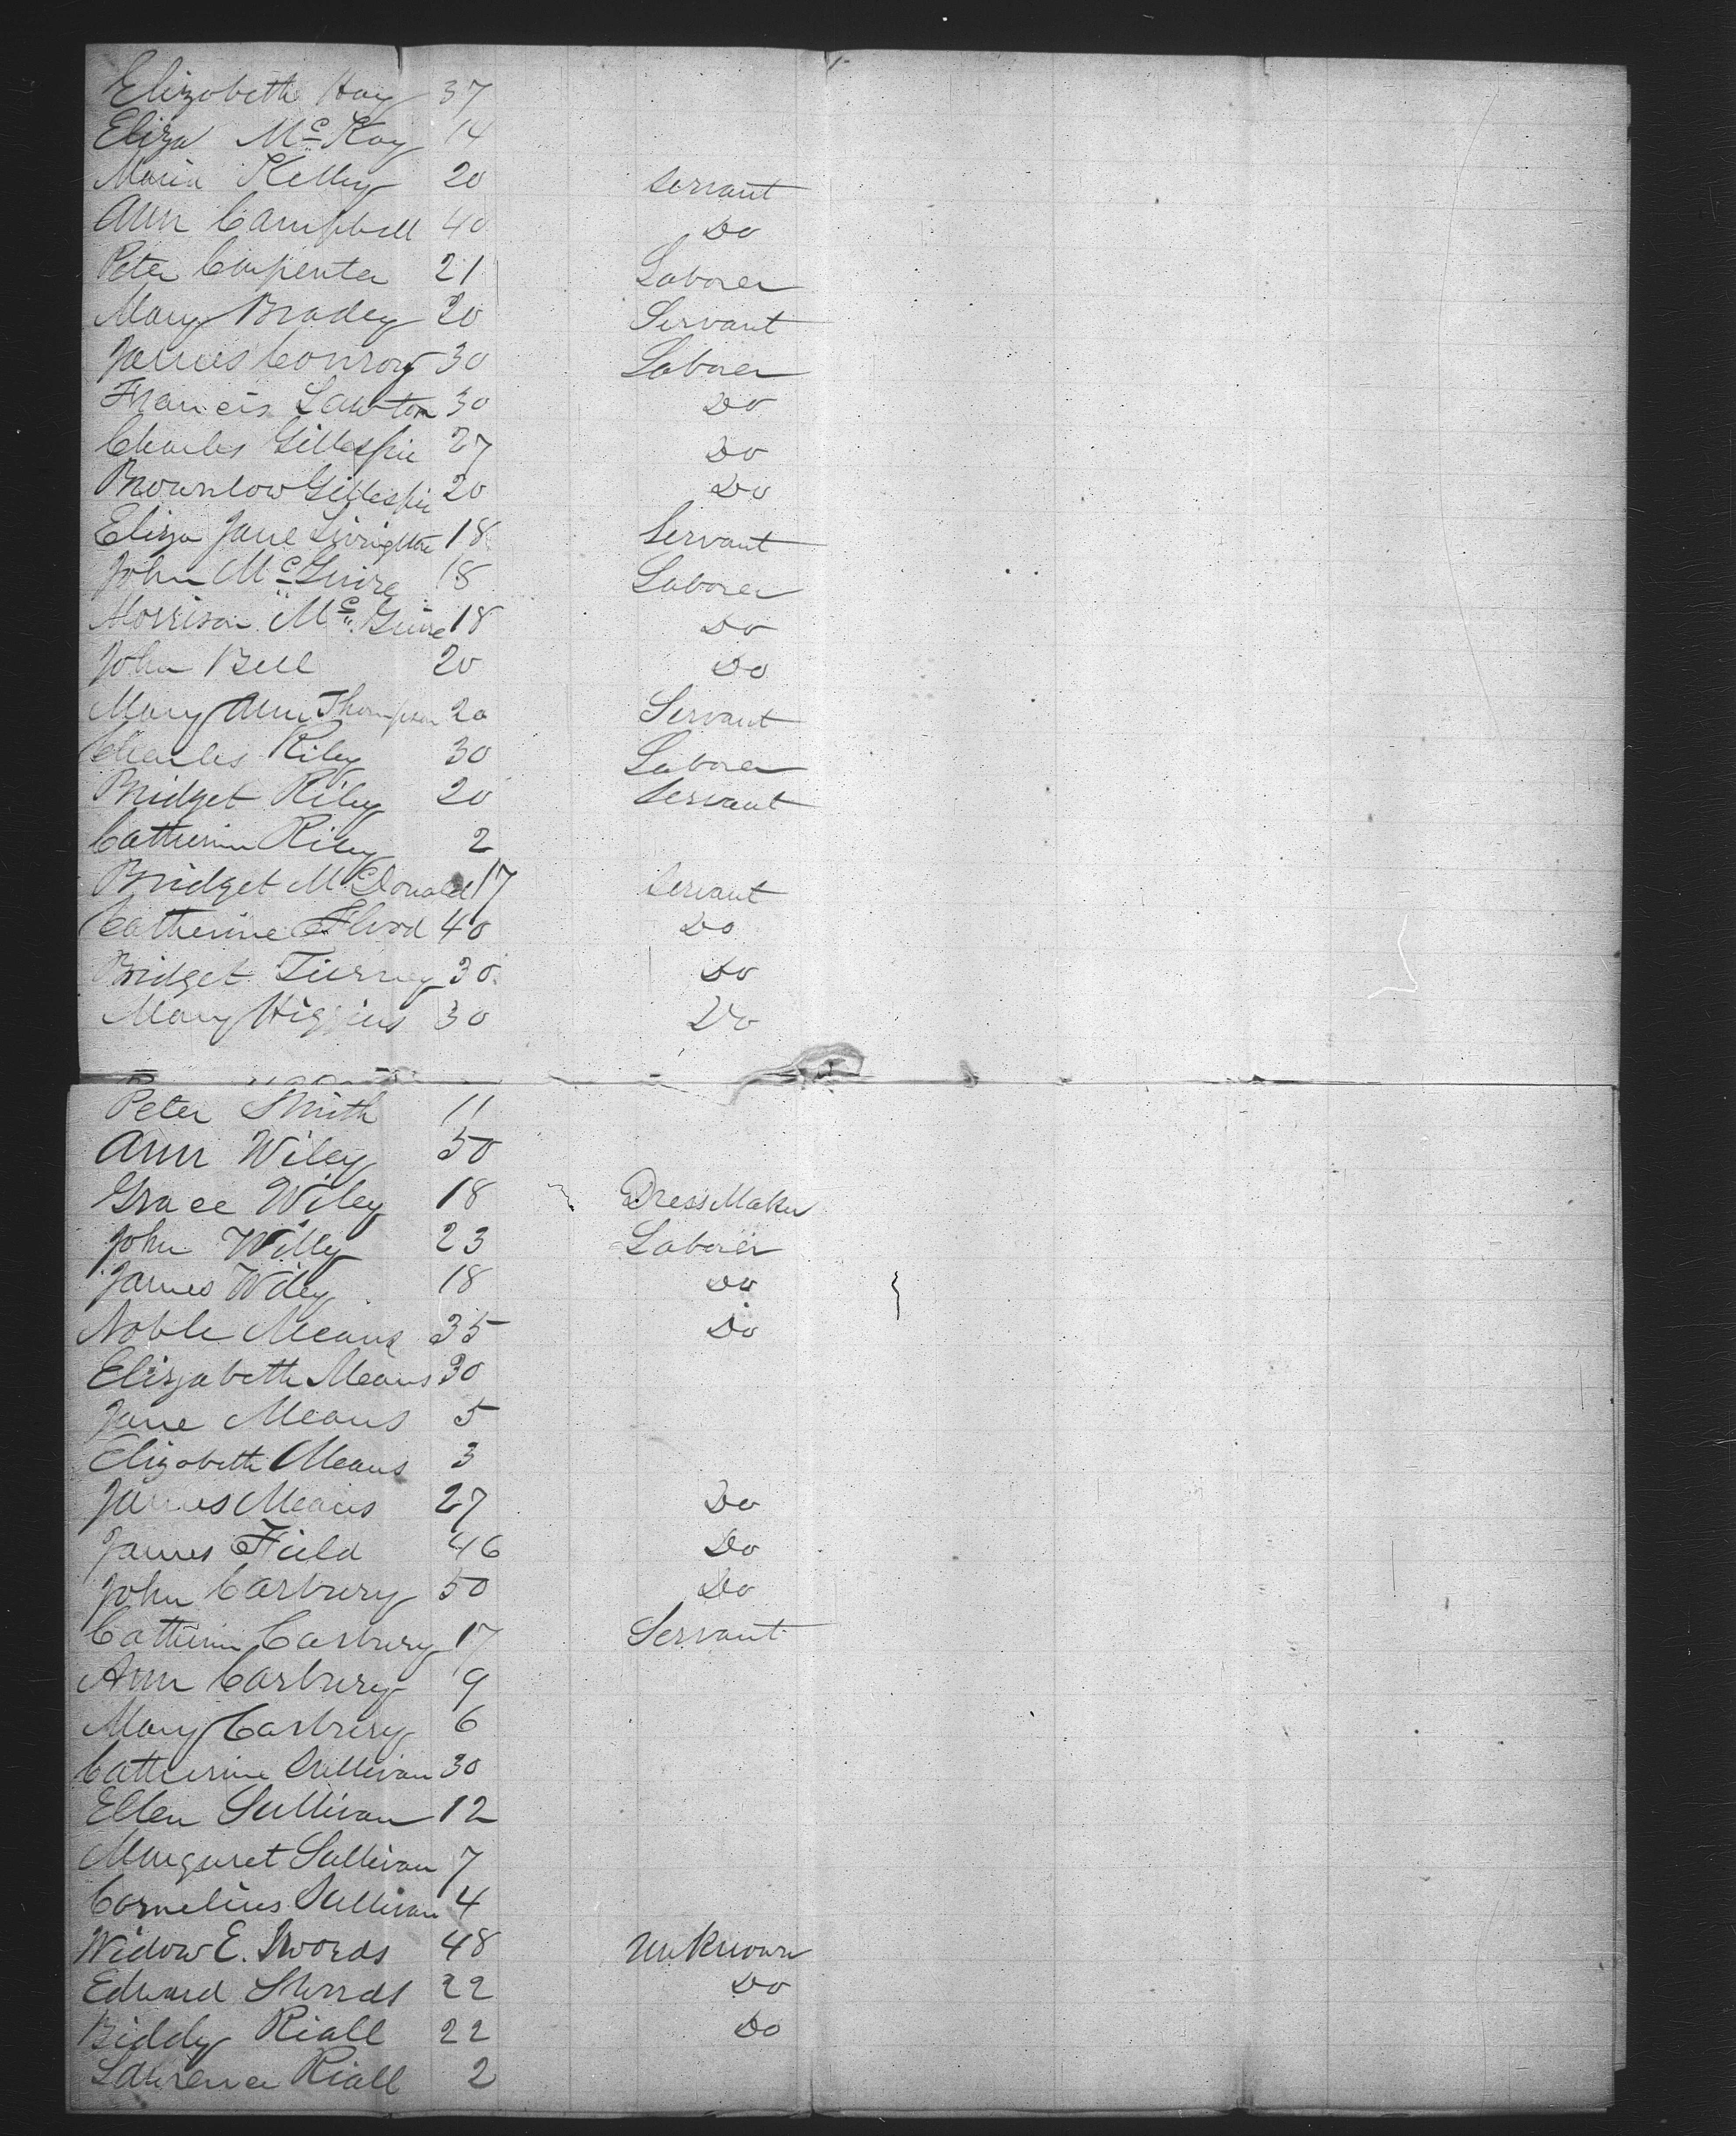 Elizabeth Hay 37
Eliza McKay 14
Maria Kelly 20 Servant
Ann Campbell 40 Do
Peter Carpenter 21 Laborer
Mary Bradey 20 Servant
James Conroy 30 Laborer
Francis Lawton 30 Do
Charles Gillespie 27 Do
Brownlow Gillespie 20 Do
Eliza Jane Livingston 18 Servant
John McGuire 18 Laborer
Morrison McGuire 18 Do
John Bell 20 Do
Mary Ann Thompson 20 Servant
Charles Riley 30 Laborer
Bridget Riley 20 Servant
Catherine Riley 2
Bridget McDonald 17 Servant
Catherine Flood 40 Do
Bridget Tierney 30 Do
Mary Higgins 30 Do
Peter Smith 11
Ann Wiley 50
Grace Wiley 18 DressMaker
John Willy 23 Laborer
James Wiley 18 Do
Noble Means 35 Do
Elizabeth Means 30
Jane Means 5
Elizabeth Means 3
James Means 27 Do
James Field 46 Do
John Carbury 50 Do
Catherine Carbury 17 Servant
Ann Carbury 9
Mary Carbury 6
Catherine Sullivan 30
Ellen Sullivan 12
Margaret Sullivan 7
Cornelius Sullivan 4
Widow E. Swords 48 Unknown
Edward Swords 22 Do
Biddy Riall 22 Do
Lawrence Riall 2